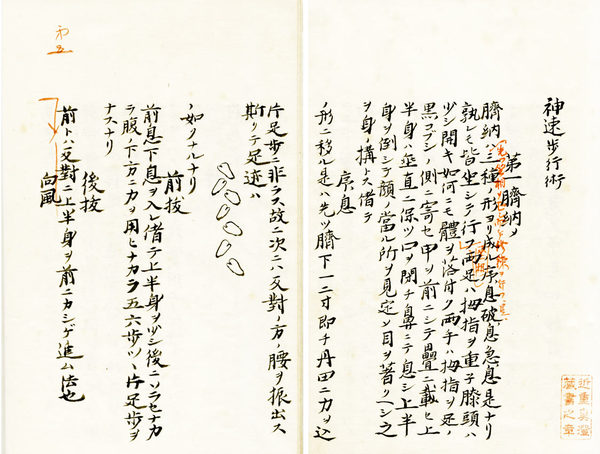 神速歩行術
第一臍納メ
臍納ハ三種ノ形ヨリ成ル序息破息急息是ナリ
孰レモ皆坐シテ行フ両足ハ拇指ヲ重子膝頭ハ
少シ開キ如何ニモ體ヲ落付ク両手ハ拇指ヲ足ノ
黒コブシノ側ニ寄セ甲ヲ前ニシテ疊ニ載セ上
半身ハ垂直ニ保ツ口ヲ閉チ鼻ニテ息シ上半
身ヲ倒シテ額ノ當ル所ヲ見定メ目ヲ著クヘシ之
ヲ身ノ構トス偖テ
序息
ノ形ニ移ル是ハ先ツ臍下一二寸即チ丹田ニ力ヲ込
近重真澄
蔵書之章
第五
片足歩ニ非ラス故ニ次ニハ反對ノ方ノ腰ヲ振出ス
斯クテ足迹ハ
ノ如クナルナリ
前抜
前息下息ヲ入レ偖テ上半身ヲ少シ後ニソラセナカ
ラ腹ノ下方ニ力ヲ用ヒナカラ五六歩ツヽ片足歩ヲ
ナスナリ
後抜
前トハ反對ニ上半身ヲ前ニカシゲ進ム法也
向風